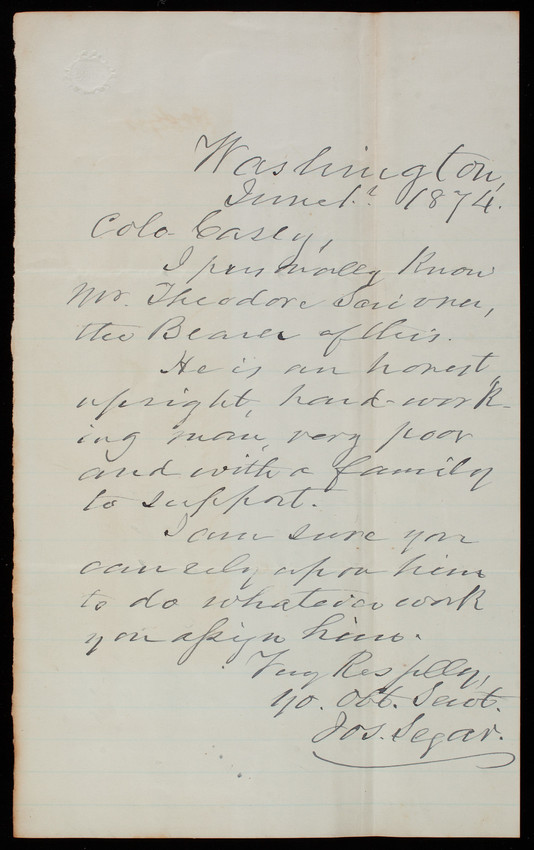 Washington,
June 1st 1874.
Colo. Casey,
I personally know
Mr. Theodore Scrivner,
the Bearer of this.
He is an honest,
upright, hard-work-
ing man, very poor
and with a family
to support.
I am sure you
can rely upon him
to do whatever work
you assign him.
Very Resplly,
yo. Obt. Servt.
Jos. Segar.